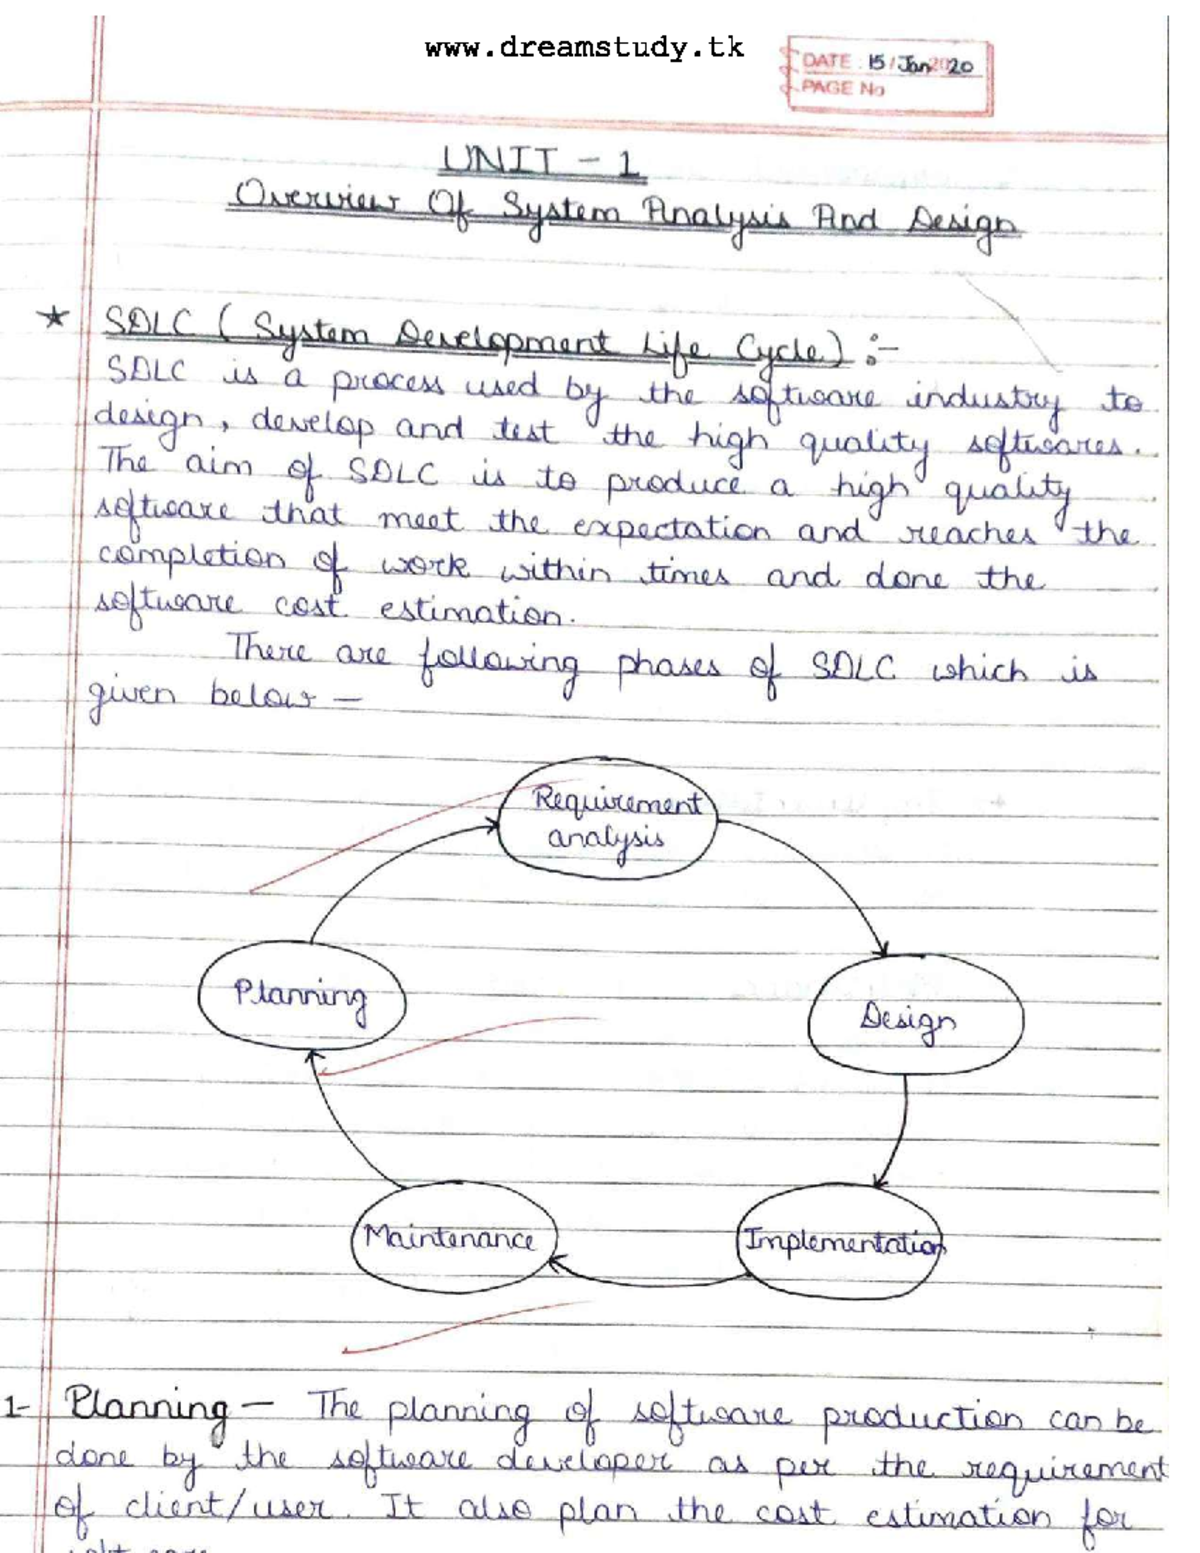 www.dreamstudy.tk
DATE : 15/Jan/2020
PAGE No
UNIT - 1
Overview Of System Analysis And Design
★ SDLC ( System Development Life Cycle ) :-
SDLC is a process used by the software industry to
design, develop and test the high quality softwares.
The aim of SDLC is to produce a high quality
software that meet the expectation and reaches the
completion of work within times and done the
software cost estimation.
There are following phases of SDLC which is
given below —
Requirement
analysis
Planning
Design
Maintenance
Implementation
1- Planning — The planning of software production can be
done by the software developer as per the requirement
of client/user. It also plan the cost estimation for